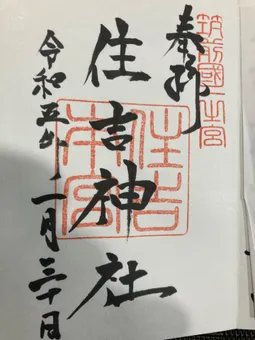 筑前國一之宮
奉拝
住吉神社
住吉
本宮
令和五年一月三十日